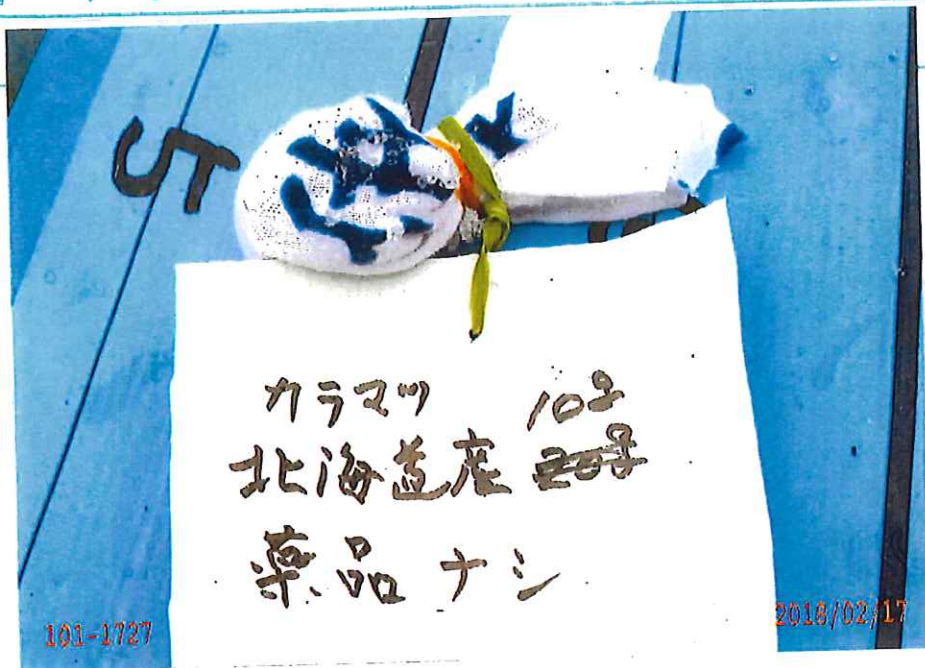 5
カラマツ 10g
北海道産 20g
薬品 ナシ
101-1727
2018/02/17